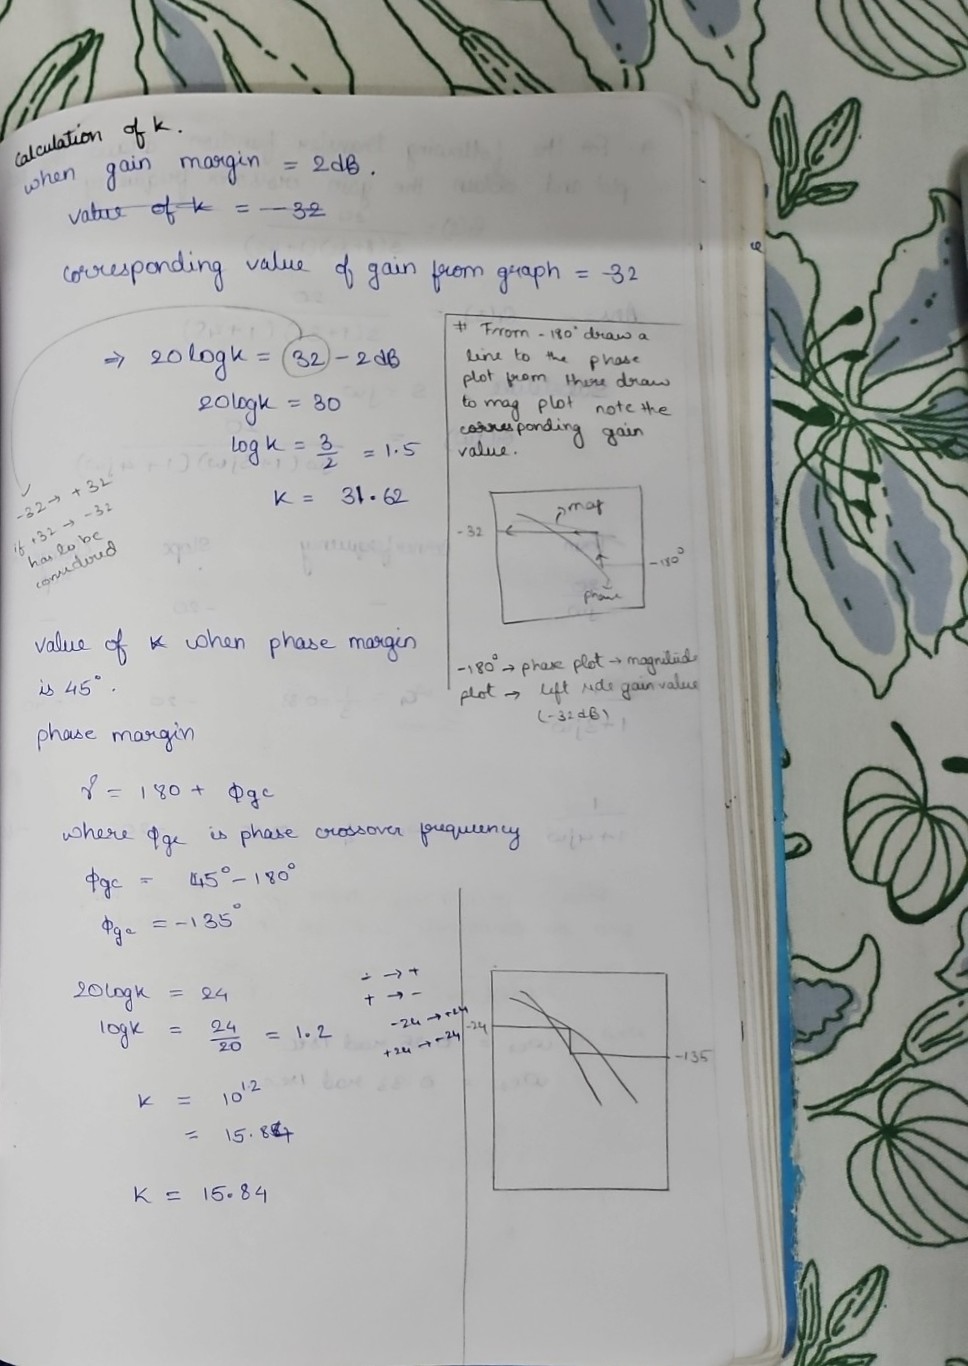 calculation of k.
when gain margin = 2dB.
value of k = -32
corresponding value of gain from graph = -32
⇒ 20logk = 32 - 2dB
20logk = 30
logk = 3/2 = 1.5
k = 31.62
-32 → +32
if +32 → -32
has to be
considered
# From -180° draw a
line to the phase
plot from there draw
to mag plot note the
corresponding gain
value.
mag
-32
-180°
phase
-180° → phase plot → magnitude
plot → left side gain value
(-32dB)
value of k when phase margin
is 45°.
phase margin
γ = 180 + ϕgc
where ϕgc is phase crossover frequency
ϕgc = 45° - 180°
ϕgc = -135°
20logk = 24
logk = 24/20 = 1.2
- → +
+ → -
-24 → +24
+24 → -24
-24
-135
k = 10^1.2
= 15.84
K = 15.84